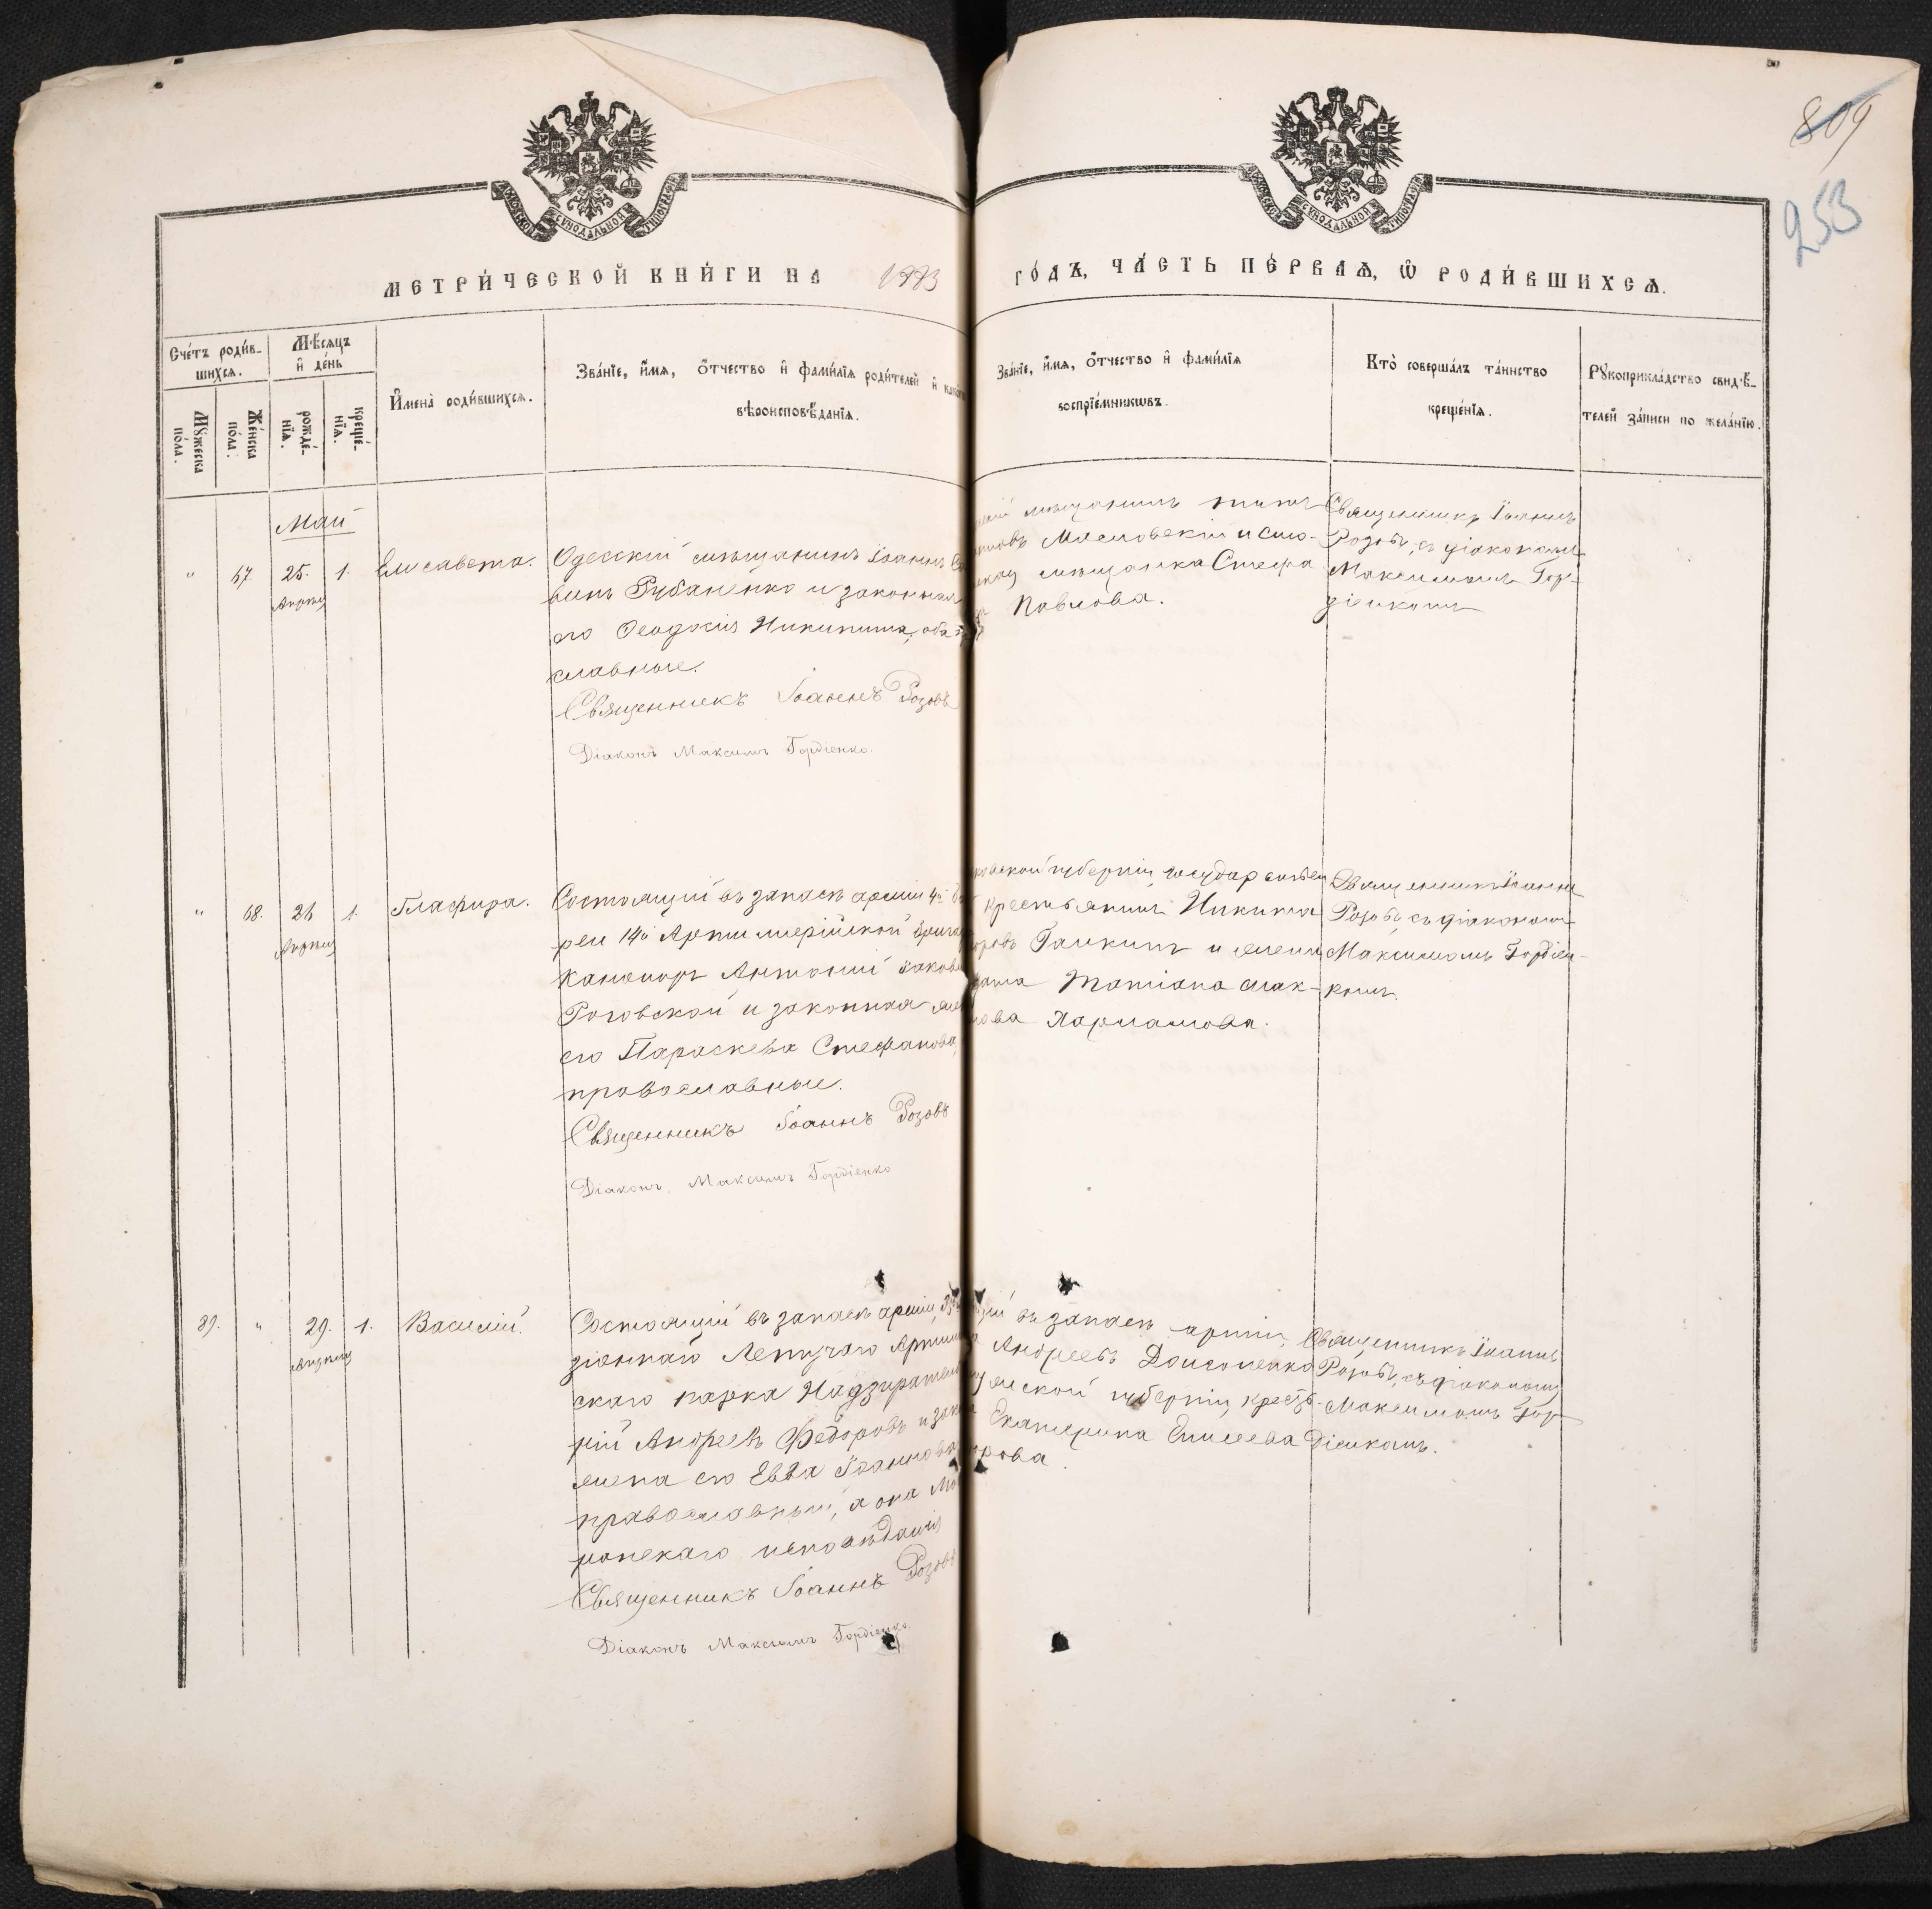 809
253
МОСКОВСКОЙ СѴНОДАЛЬНОЙ ТИПОГРАФІИ
МОСКОВСКОЙ СѴНОДАЛЬНОЙ ТИПОГРАФІИ
МЕТРИ́ЧЕСКОЙ КНИ́ГИ НА 1883
ГО́ДЪ, ЧА́СТЬ ПЕ́РВАѦ, Ѽ РОДИ́ВШИХСѦ.
Сче́тъ роди́в-
шихсѧ.
Мꙋ́жеска по́ла.
Же́нска по́ла.
Мѣ́сѧцъ
и҆ де́нь
рожде́-нїѧ.
креще́-нїѧ.
И҆мена̀ роди́вшихсѧ.
Зва́нїе, и҆́мѧ, ѻ҆́тчество и҆ фами́лїѧ роди́телей и҆
вѣроисповѣ́данїѧ.
Зва́нїе, и҆́мѧ, ѻ҆́тчество и҆ фами́лїѧ
воспрїе́мникѡвъ.
Кто̀ соверша́лъ та́инство
креще́нїѧ.
Рꙋкоприкла́дство свидѣ́-
телей за́писи по жела́нїю.
Май
" 67. 25. 1. Елисавета.
Апрѣля
Одесскій мѣщанинъ Іоаннъ
вичъ Рубаненко и законная
его Ѳеодосія Никитина, оба
славные.
Священникъ Іоаннъ Розовъ
Діаконъ Максимъ Гордіенко.
мѣщанинъ
Мясловскій и
мѣщанка Стефа
Павлова.
Священникъ Іоаннъ
Розовъ, съ діакономъ
Максимомъ Гор-
діенкомъ
" 68. 26 1. Глафира.
Апрѣля
Состоящій въ запасѣ арміи 4й
реи 14й Артиллерійской бригады
канониръ Антоній Іаковл
Роговской и законная
его Параскева Стефанова,
православные.
Священникъ Іоаннъ Розовъ
Діаконъ Максимъ Гордіенко
ковской губерніи, государствен
крестьянинъ Никита
Галкинъ и
Татіана Мак-
мова Харламова.
Священникъ Іоаннъ
Розовъ, съ діакономъ
Максимомъ Гордіен-
комъ.
89. " 29. 1. Василій.
Апрѣля
Состоящій въ запасѣ арміи,
зіоннаго Летучаго Артилл
скаго парка Надзиратель
ній Андреевъ Ѳедоровъ и зак
жена его Евва Іоаннова
православный, а она
ранскаго исповѣданія
Священникъ Іоаннъ Розовъ
Діаконъ Максимъ Гордіенко.
въ запасѣ арміи,
Андреевъ Долгопенко
губерніи, крест-
Екатерина Елисеева
рова.
Священникъ Іоаннъ
Розовъ, съ діакономъ
Максимомъ Гор-
діенкомъ.